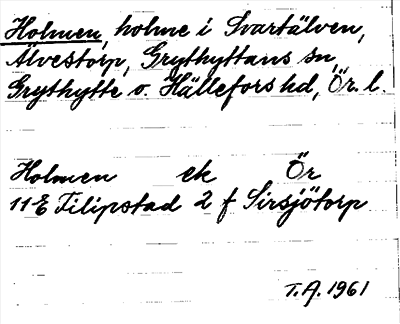 Holmen, holme i Svartälven,
Älvestorp, Grythyttans sn,
Grythytte o. Hällefors hd, Ör. l.
Holmen ek Ör
11 E Filipstad 2 f Sirsjötorp
T.A. 1961